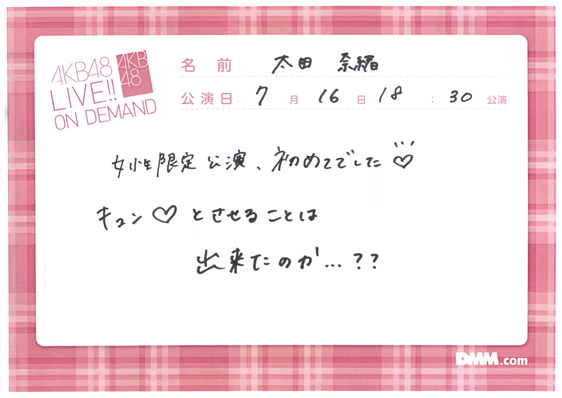 AKB48
LIVE!!
ON DEMAND
AKB
48
名前 太田 奈緒
公演日 7月16日 18:30公演
女性限定公演、初めてでした♡
キュン♡とさせることは
出来たのか…??
DMM.com